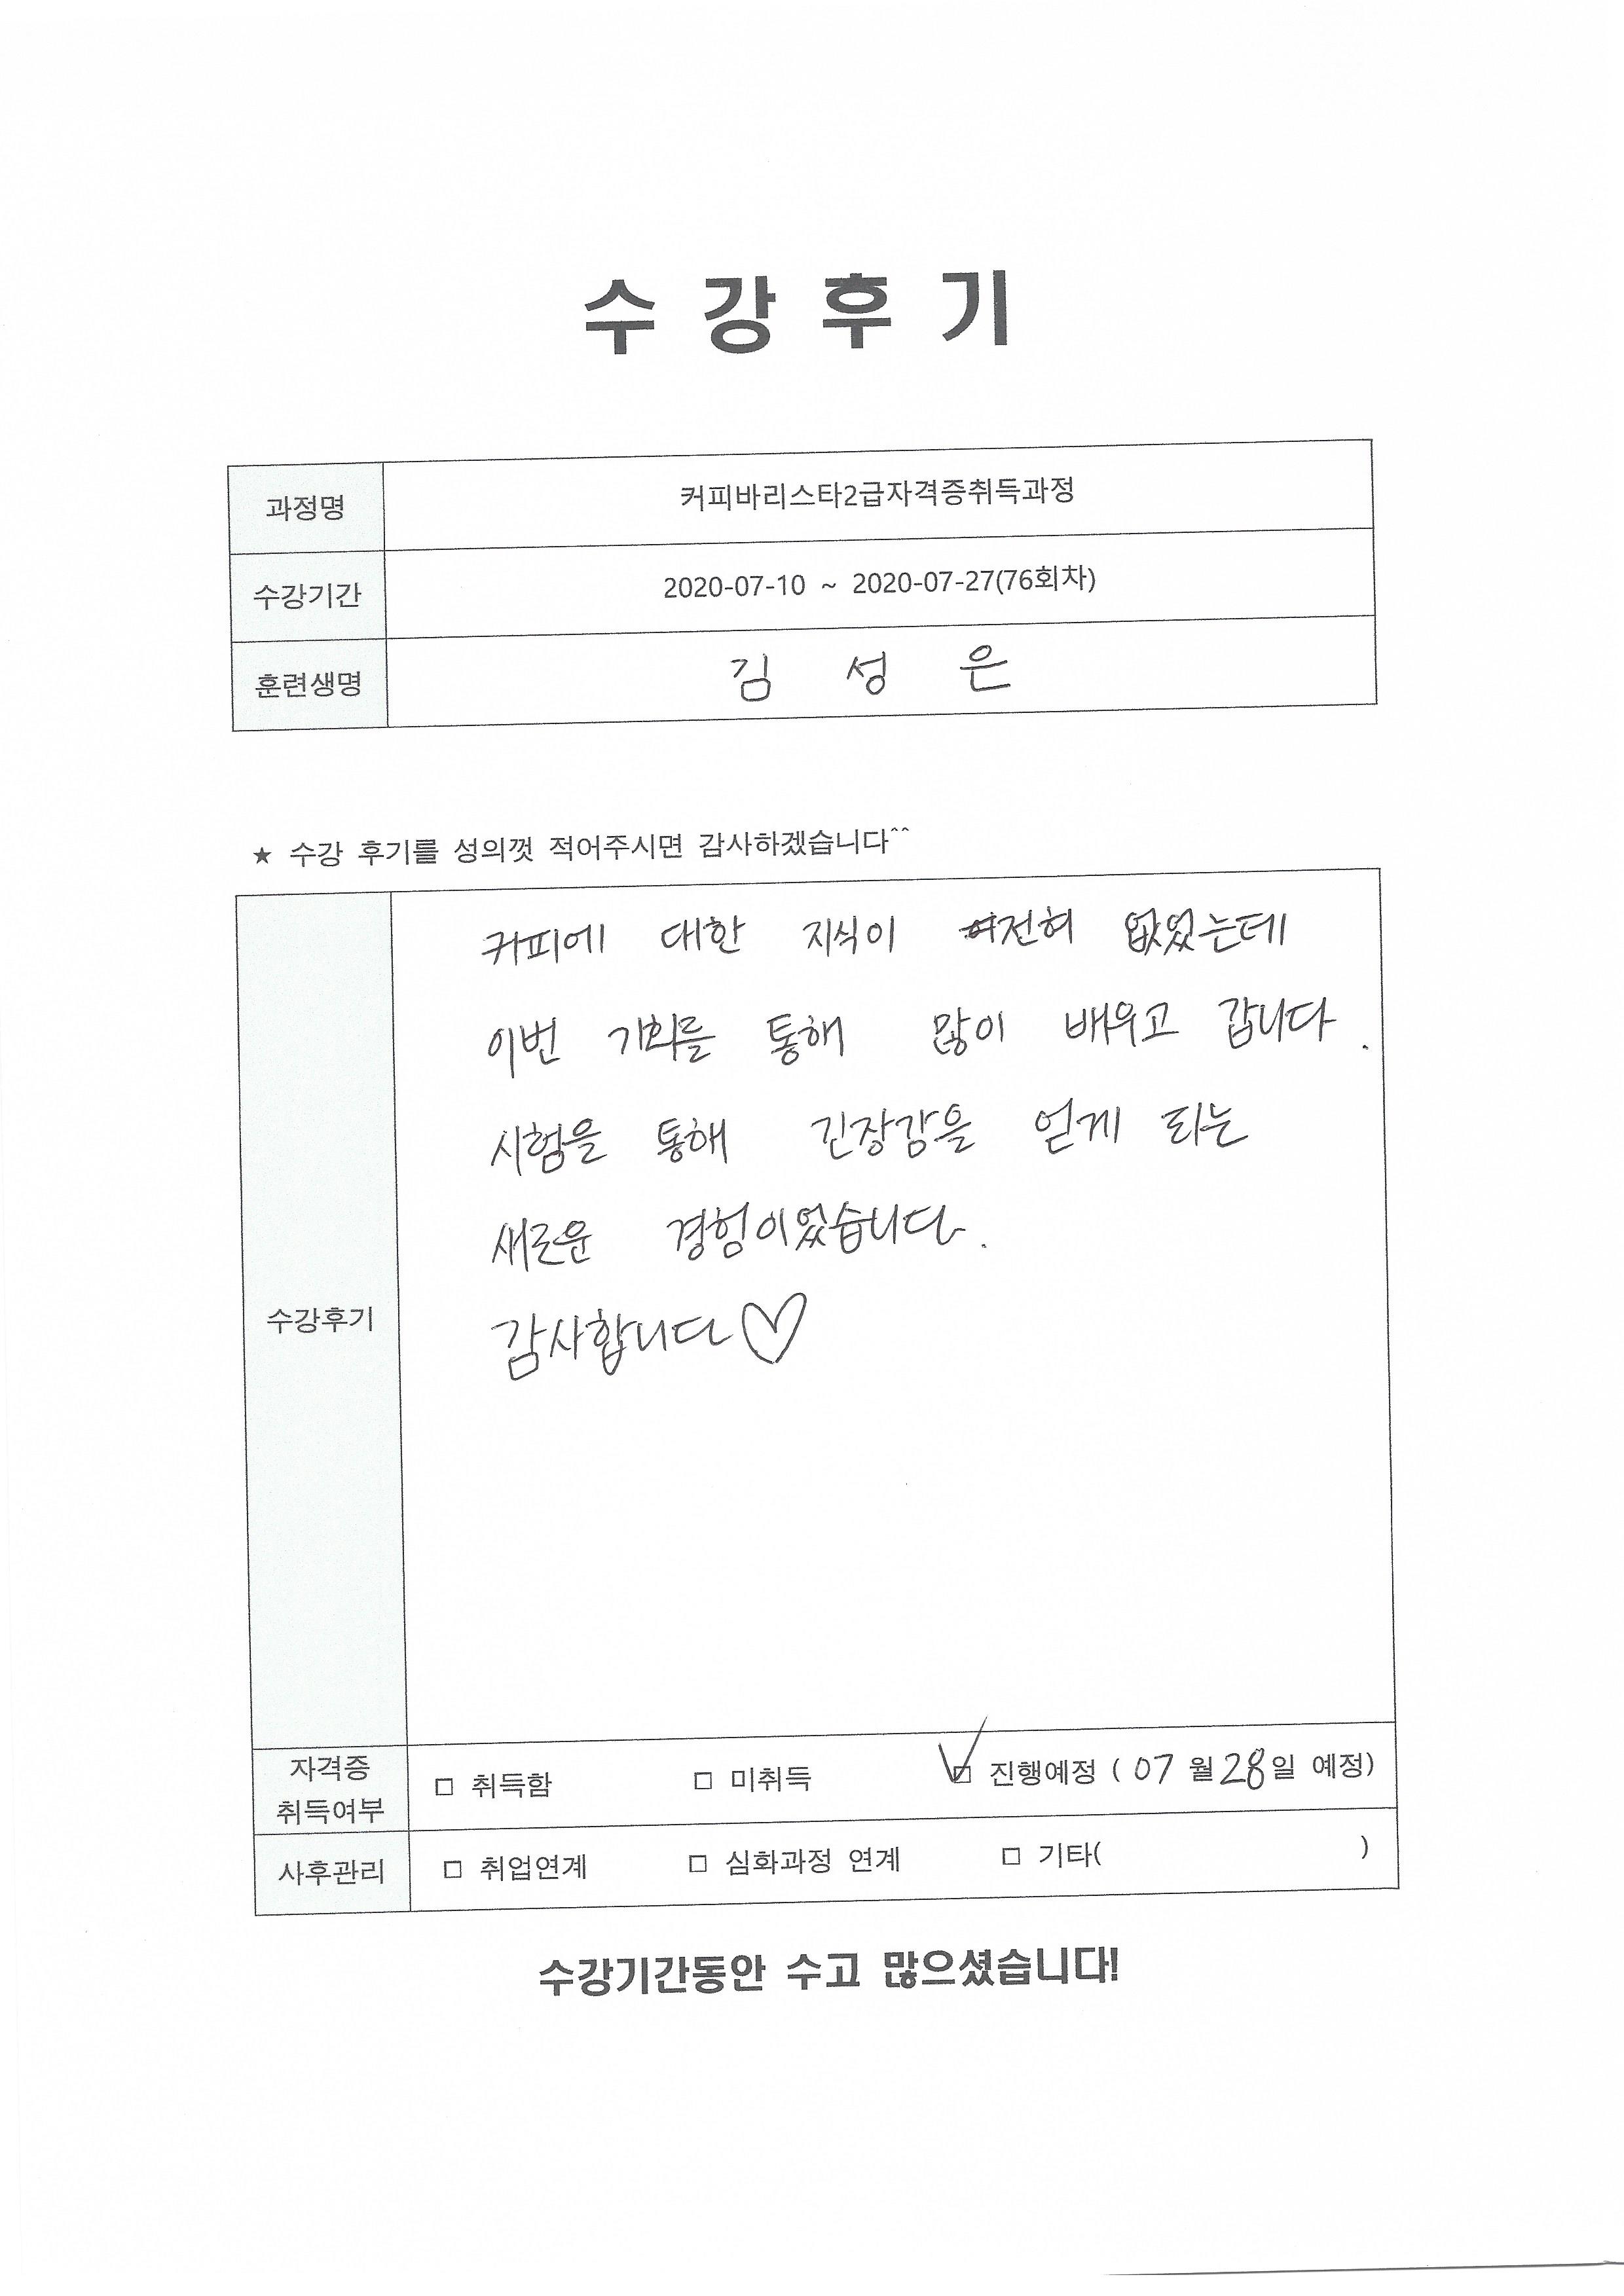 수강후기
과정명 커피바리스타2급자격증취득과정
수강기간 2020-07-10 ~ 2020-07-27(76회차)
훈련생명 김 성 은
★ 수강 후기를 성의껏 적어주시면 감사하겠습니다^^
수강후기
커피에 대한 지식이 전혀 없었는데
이번 기회를 통해 많이 배우고 갑니다.
시험을 통해 긴장감을 얻게 되는
새로운 경험이었습니다.
감사합니다♡
자격증
취득여부
□ 취득함 □ 미취득 ☑ 진행예정 ( 07 월 28일 예정)
사후관리 □ 취업연계 □ 심화과정 연계 □ 기타( )
수강기간동안 수고 많으셨습니다!